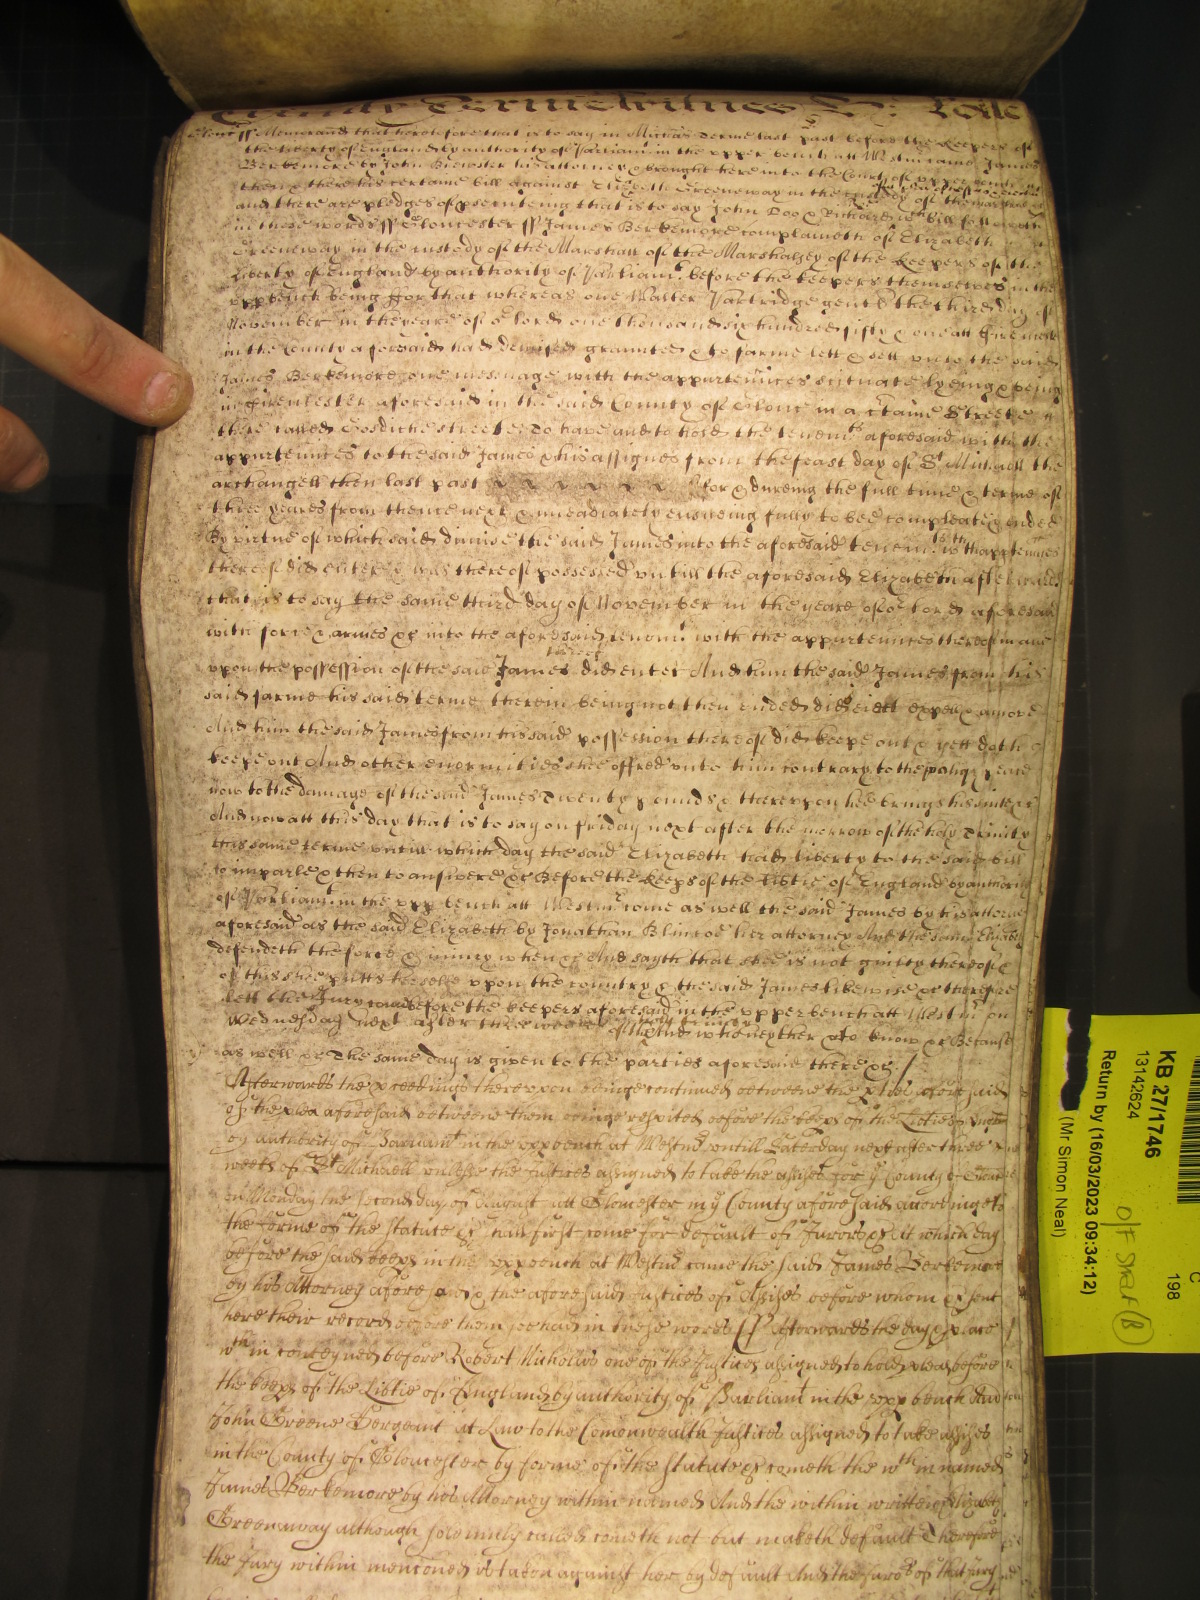 Glouc ss Memorand that heretofore that is to say in Michas Terme last past before the Keepers of
the liberty of England by authority of Parliamt in the upper bench att Westm came James
Berkemore by John Brewster his attorney & brought here into the Court of
then & there his certaine bill against Elizabeth Greeneway in the custody of the Marshall
and there are pledges of prosecuting that is to say John Doo & Richard bill followeth
in these words ss Gloucester ss James Berkemore complaineth of Elizabeth
Greeneway in the custody of the Marshall of the Marshalsey of the Keepers of the
Liberty of England by authority of Parliamt before the keepers themselves in the
upp bench being ffor that whereas one Walter Partridge gent the third day of
November in the yeare of or lord one thousand six hundred fifty & one att
in the County aforesaid had demised graunted & to farme lett & sett unto the said
James Berkemore one messuage with the appurtennces scituate lyeing & being
in Cirencester aforesaid in the said County of Glouc in a ctaine Streete
there called streete To have and to hold the tenemts aforesaid with the
appurtennces to the said James & his assignes from the feast day of St Michaell the
archangell then last past for & dureing the full time & terme of
three yeares from thence next & imeadiately ensueing fully to bee compleate & ended
By virtue of which said dimise the said James into the aforesaid tenemts wth thapptennces
thereof did enter & was thereof possessed untill the aforesaid Elizabeth afterwards
that is to say the same third day of November in the yeare of or lord aforesaid
with force & armes &c into the aforesaid tenemts with the appurtennces thereof in and
upon the possession of the said James thereof did enter And him the said James from his
said farme his said terme therein being not then ended did eiect expell & amove
And him the said James from his said possession thereof did keepe out & yett doth
keepe out And other enormities shee offred unto him contrary to the publiq peace
now to the damage of the said James Twenty pounds & thereupon hee brings his suite &c
And now att this day that is to say on friday next after the morrow of the holy Trinity
this same terme untill which day the said Elizabeth had liberty to the said bill
to imparle & then to answere &c Before the keeps of the libtie of England by authority
of Parliamt in the upp bench att Westmr come as well the said James by his attorney
aforesaid as the said Elizabeth by Jonathan Blincoe her attorney And the same Elizabeth
defendeth the force & iniury when &c And sayth that shee is not guilty thereof &
of this shee putts herselfe upon the country & the said James likewise &c therefore
lett the Jury come before the keepers aforesaid in the upper bench att Westmr on
Wednesday next after three weekes of the holy Trinity And who neyther &c to know &c Because
as well &c The same day is given to the parties aforesaid there &c /
Afterwards the pceedings thereupon being continued betweene the pties aforesaid
of the plea aforesaid betweene them being respited before the keeps of the Libtie of England
by authority of Parliamt in the upp bench at Westmr untill Saturday next after three
weeks of St Michaell unlesse the Justices assigned to take the assises for ye County of Glouc
on Monday the second day of August att Gloucester in ye County aforesaid accordinge to
the forme of the statute &c shall first come for default of Jurors &c At which day
before the said keeps in the upp bench at Westmr came the said James Berkemore
by his Attorney aforesaid & the aforesaid Justices of Assises before whom &c sent
here their record before them had in these words ss Afterwards the day & place
wthin conteyned before Robert Nicholas one of the Justices assigned to hold pleas before
the keeps of the Libtie of England by authority of Parliamt in the upp bench And
John Greene Sergeant at Law to the Comonwealth Justices assigned to take assises
in the County of Gloucester by forme of the statute &c cometh the wthin named
James Berkemore by his Attorney within named And the within written Elizabeth
Greeneway although solemnly called cometh not but maketh default Therefore
the Jury within mencioned is taken against her by default And the Jurors of that Jury
KB 27/1746
13142624
Return by (16/03/2023 09:34:12)
(Mr Simon Neal)
198
C